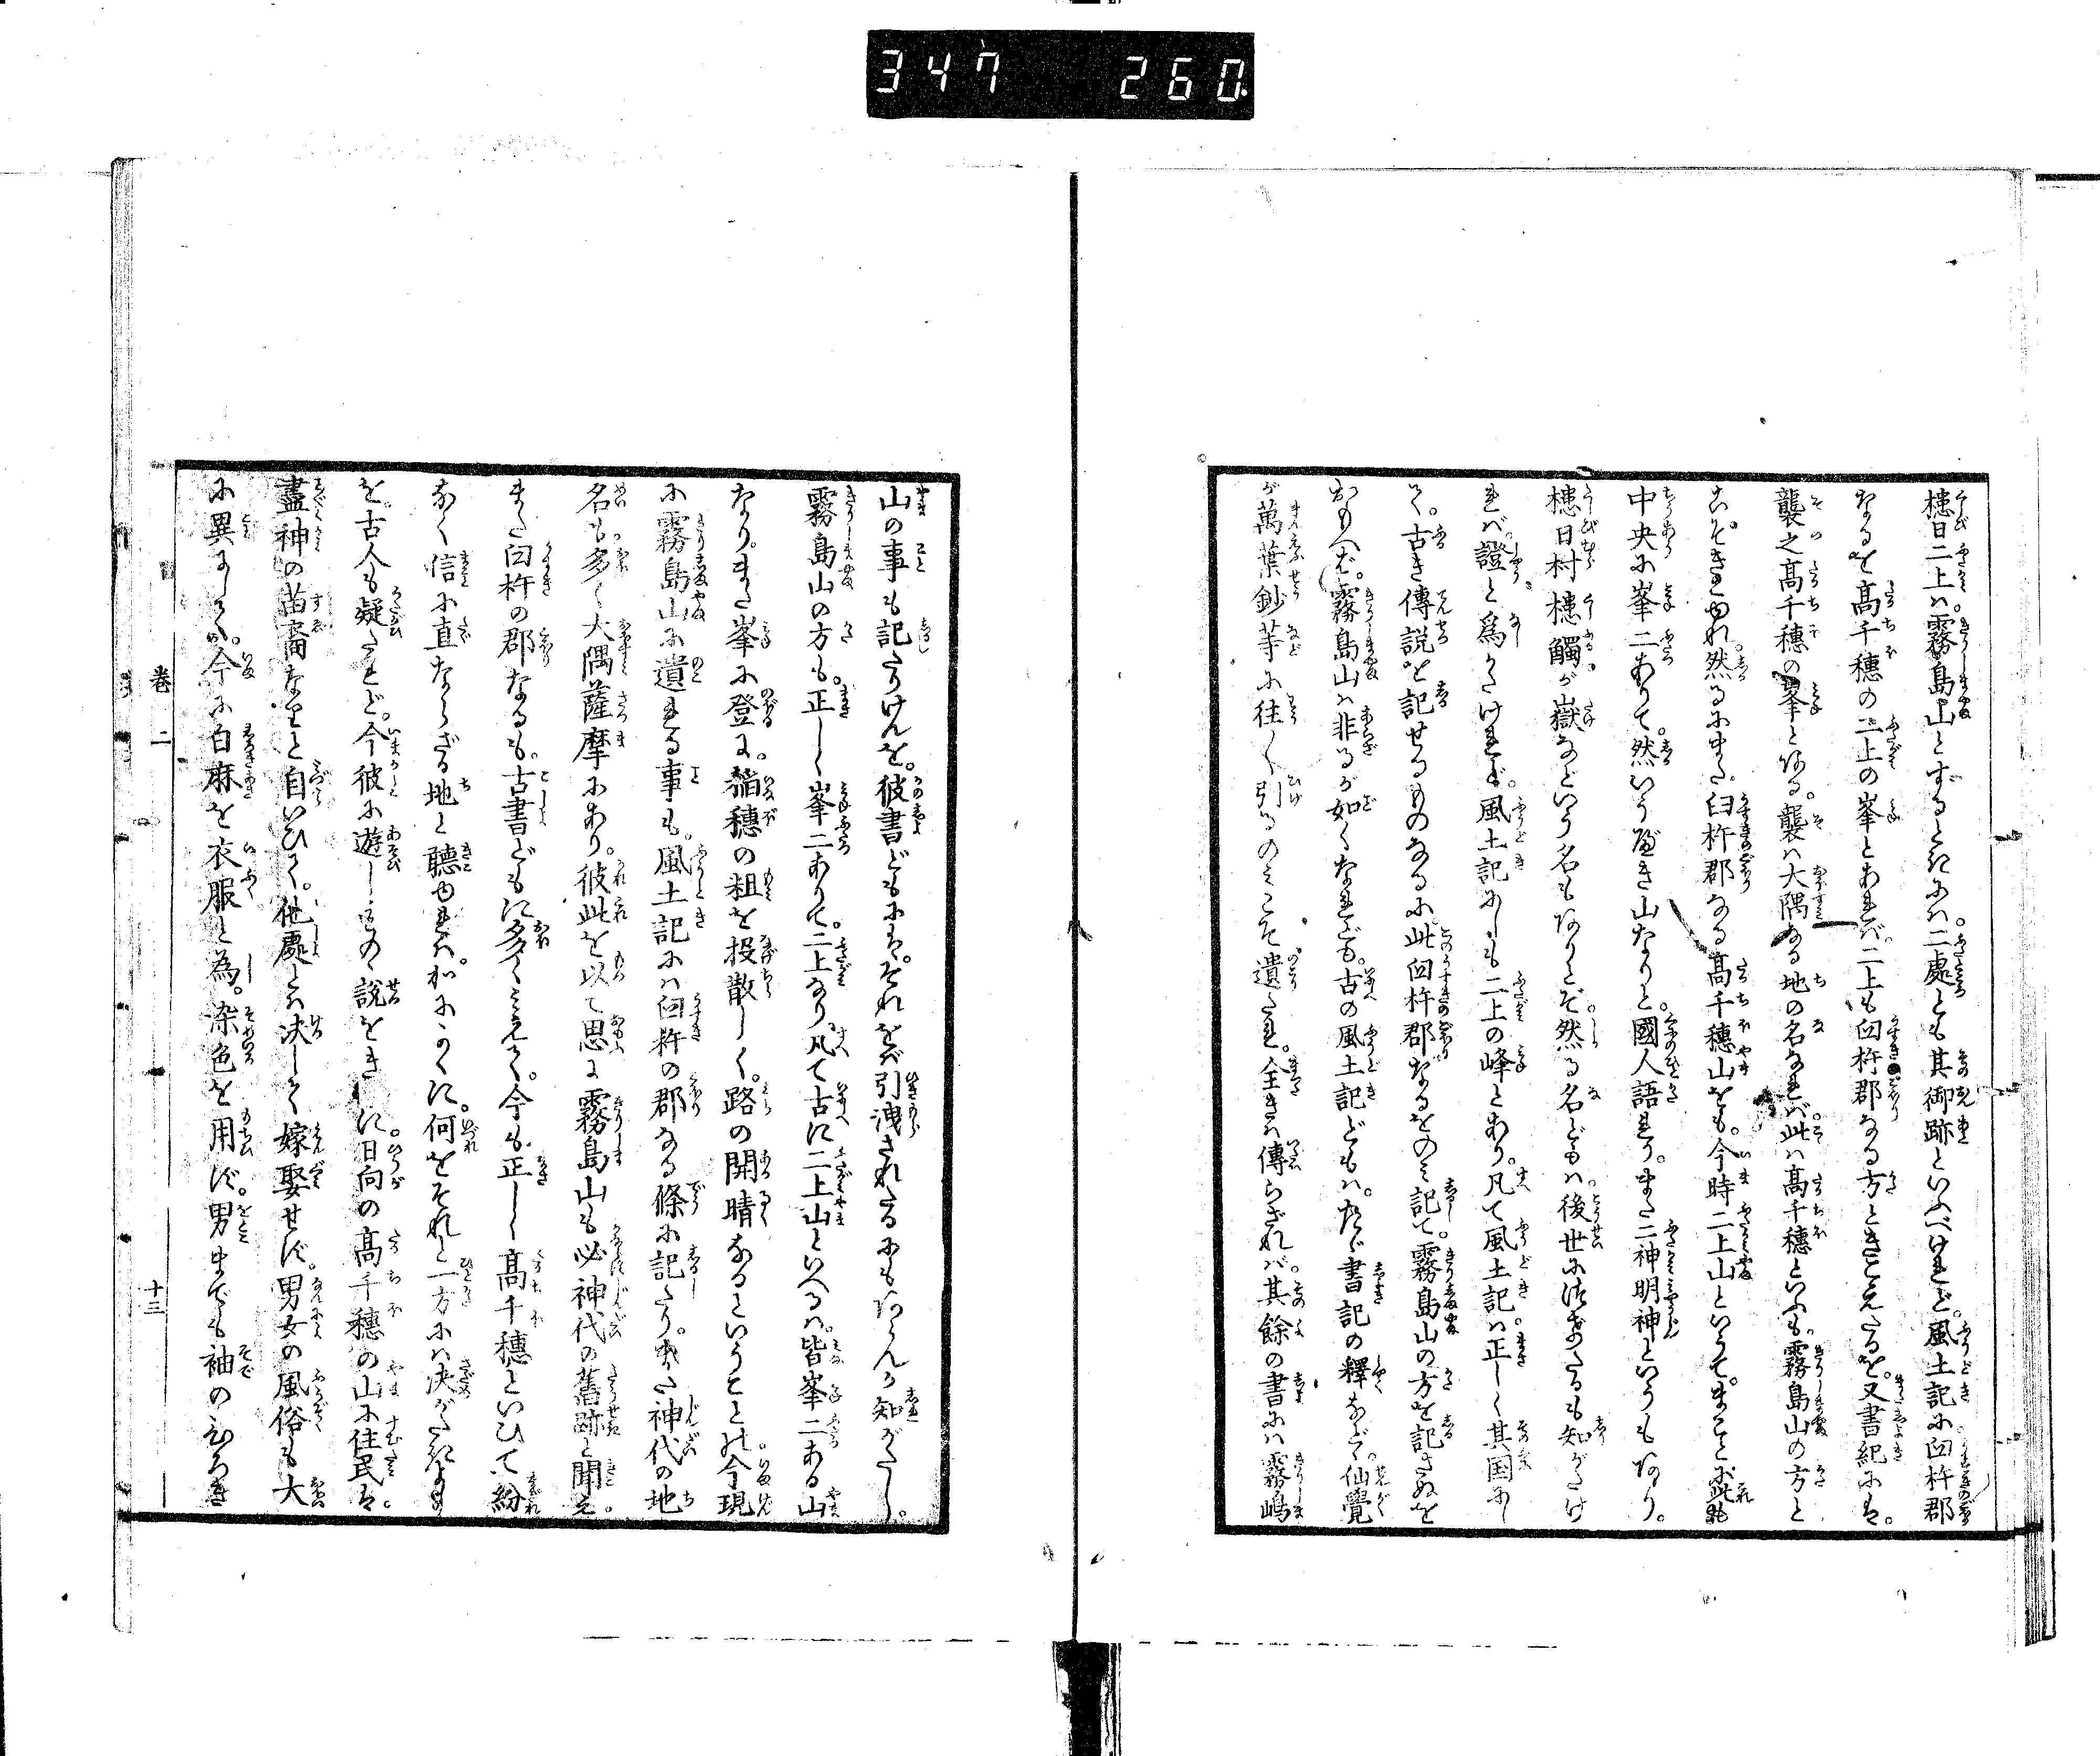 347 260
槵日二上ハ。霧島山とするときハ。二處とも其御跡といふべけれど。風土記に臼杵郡
なるを高千穗の二上の峯とあれバ。二上も臼杵郡なる方ときこえたるを。又書紀にハ。
襲之高千穗の峯とある。襲ハ大隅なる地の名なれバ。此ハ高千穗といふも。霧島山の方と
こそきこゆれ。然るにまた臼杵郡なる高千穗山をも。今時二上山というて。まことに此も
中央に峯二ありて。然いうべき山なりと。國人語れり。また二神明神というもあり。
槵日村槵觸が嶽などいう名もありとぞ。然る名どもハ。後世に作者たるも知がたけ
れバ。證と爲がたけれど。風土記にしも二上の峰とあり。凡て風土記ハ正しく其国にし
て。古き傳説を記せるものなるに。此臼杵郡なるをのミ記て。霧島山の方を記さぬを
おもへバ。霧島山ハ非るが如くなれども。古の風土記どもハ。たゞ書記の釋など。仙覺
が萬葉鈔等に往〻引るのミこそ遺たれ。全きハ傳らざれバ。其餘の書にハ霧嶋
山の事も記たりけんを。彼書どもにハ。それをバ引洩されたるにもあらんか知がたし。
霧島山の方も。正しく峯二ありて。二上なり。凡て古に二上山といへるハ。皆峯二ある山
なり。また峯に登るに。稲穗の粗を投散しく。路の開晴なるということの。今現
に霧島山に遺れる事も。風土記にハ臼杵の郡なる條に記たり。また神代の地
名も多く大隅薩摩にあり。彼此を以て思に霧島山も必神代の舊跡と聞え。
また臼杵の郡なるも。古書どもに多くミえて。今も正しく高千穗といひて紛
なく信に直ならざる地と聽ゆれハ。かにかくに。何をそれと一方にハ決がたきよし
を。古人も疑たれど。今彼に遊しものゝ説をきくに。日向の高千穗の山に住民ハ。
盡神の苗裔なりと自いひて。他處とハ決して嫁娶せず。男女の風俗も大
に異にして。今に白麻を衣服と為。染色を用ず。男までも袖のひろき
卷二
十三